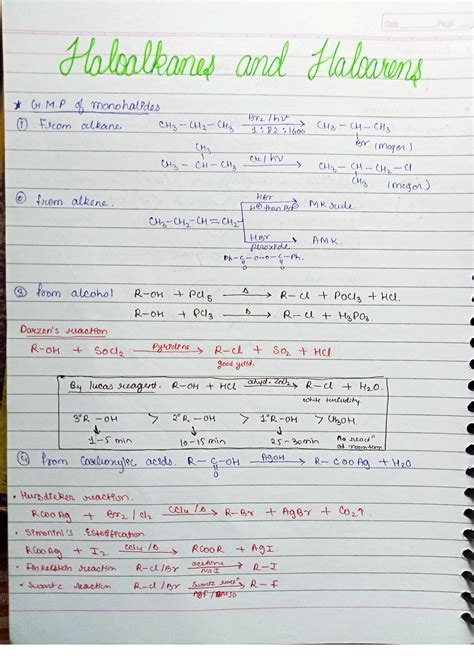 Date Page
Haloalkanes and Haloarens
★ G.M.P of monohalides
① From alkane CH₃-CH₂-CH₃ Br₂/hν 1:82:1600 → CH₃-CH-CH₃
Br (major)
CH₃
CH₃-CH-CH₃ Cl₂/hν → CH₃-CH-CH₂-Cl
CH₃ (major)
② from alkene. HBr → MK rule
CH₃-CH₂-CH=CH₂
HBr peroxide → AMK.
Ph-C-O-O-C-Ph.
O O
③ from alcohol R-OH + PCl₅ Δ → R-Cl + POCl₃ + HCl.
R-OH + PCl₃ → R-Cl + H₃PO₃.
Darzen's reaction
R-OH + SOCl₂ Pyridine → R-Cl + SO₂ + HCl.
good yield.
By lucas reagent. R-OH + HCl anhyd. ZnCl₂ → R-Cl + H₂O.
white turbidity.
3°R-OH > 2°R-OH > 1°R-OH > CH₃OH.
1-5 min 10-15 min 25-30 min No reactⁿ
④ from Carboxylic acids. R-C-OH AgOH → R-COOAg + H₂O
O
• Hunsdieker reaction.
RCOOAg + Br₂/Cl₂ CCl₄/Δ → R-Br + AgBr + CO₂↑.
• Simonini's Esterification
RCOOAg + I₂ CCl₄/Δ → RCOOR + AgI
• Finkelstein reaction R-Cl/Br acetone NaI → R-I
• Swartz reaction R-Cl/Br Swartz reactⁿ AgF/DMSO → R-F